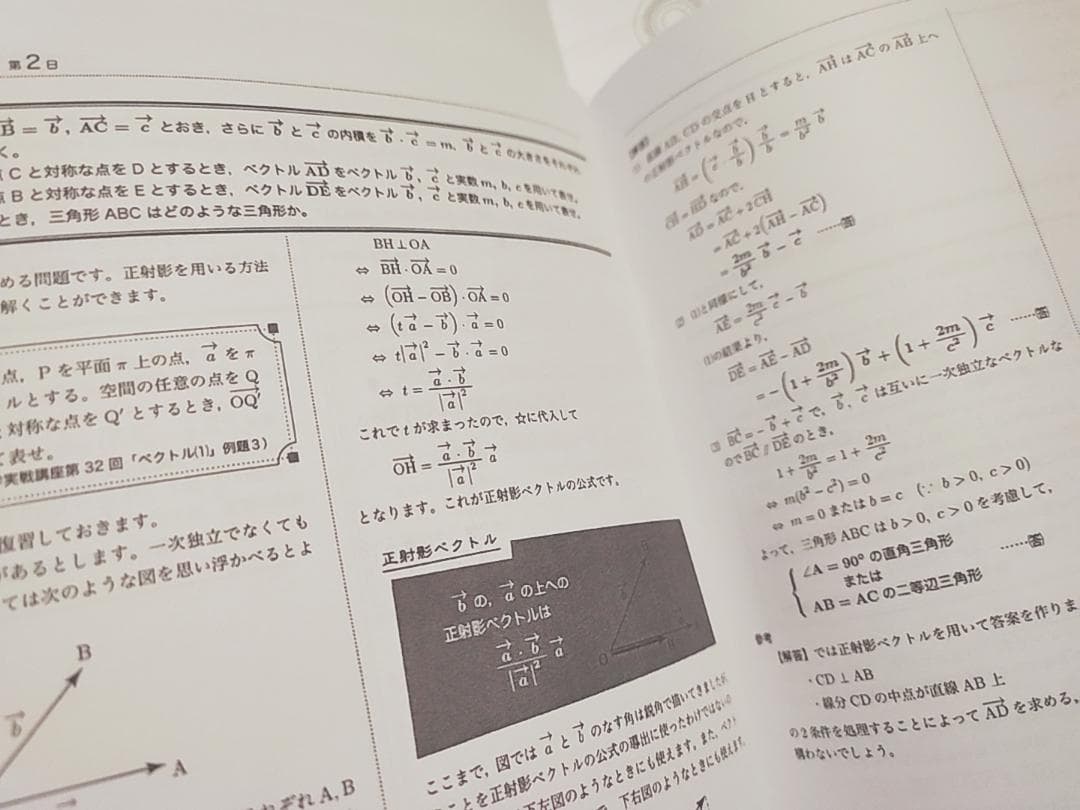 第2日
B = b, AC = c とおき, さらに b と c の内積を b・c = m, b と c の大きさをそれぞれ
く。
点 C と対称な点を D とするとき, ベクトル AD をベクトル b, c と実数 m, b, c を用いて表せ。
点 B と対称な点を E とするとき, ベクトル DE をベクトル b, c と実数 m, b, c を用いて表せ。
とき, 三角形 ABC はどのような三角形か。
める問題です。正射影を用いる方法
解くことができます。
点, P を平面 π 上の点, a を π
ルとする。空間の任意の点を Q
対称な点を Q' とするとき, OQ'
て表せ。
実戦講座第 32 回「ベクトル(1)」例題3)
復習しておきます。
があるとします。一次独立でなくても
ては次のような図を思い浮かべるとよ
B
b
A
ぞれ A, B
BH⊥OA
⇔ BH・OA = 0
⇔ (OH − OB)・OA = 0
⇔ (t a − b)・a = 0
⇔ t|a|² − b・a = 0
⇔ t = a・b / |a|²
これで t が求まったので, ☆に代入して
OH = a・b / |a|² a
となります。これが正射影ベクトルの公式です。
正射影ベクトル
b の, a の上への
正射影ベクトルは
a・b / |a|² a
O
ここまで, 図では a と b のなす角は鋭角で描いてきましたが,
ことを正射影ベクトルの公式の導出に使ったわけではないの
下左図のようなときにも使えます。また, ベクト
下右図のようなときにも使えます。
直線 AB, CD の交点を H とすると, AH は AC の AB 上へ
の正射影ベクトルなので,
AH = (c・b/b) b/b = m/b² b
CH = HD なので,
AD = AC + 2CH
= AC + 2(AH − AC)
= 2m/b² b − c ……答
(2) (1)と同様にして,
AE = 2m/c² c − b
(1)の結果より,
DE = AE − AD
= −(1 + 2m/b²) b + (1 + 2m/c²) c ……答
(3) BC = −b + c で, b, c は互いに一次独立なベクトルな
ので BC // DE のとき,
1 + 2m/b² = 1 + 2m/c²
⇔ m(b² − c²) = 0
⇔ m = 0 または b = c (∵ b > 0, c > 0)
よって, 三角形 ABC は b > 0, c > 0 を考慮して,
∠A = 90° の直角三角形
または ……答
AB = AC の二等辺三角形
参考
【解答】では正射影ベクトルを用いて答案を作りま
・CD ⊥ AB
・線分 CD の中点が直線 AB 上
の2条件を処理することによって AD を求める,
構わないでしょう。